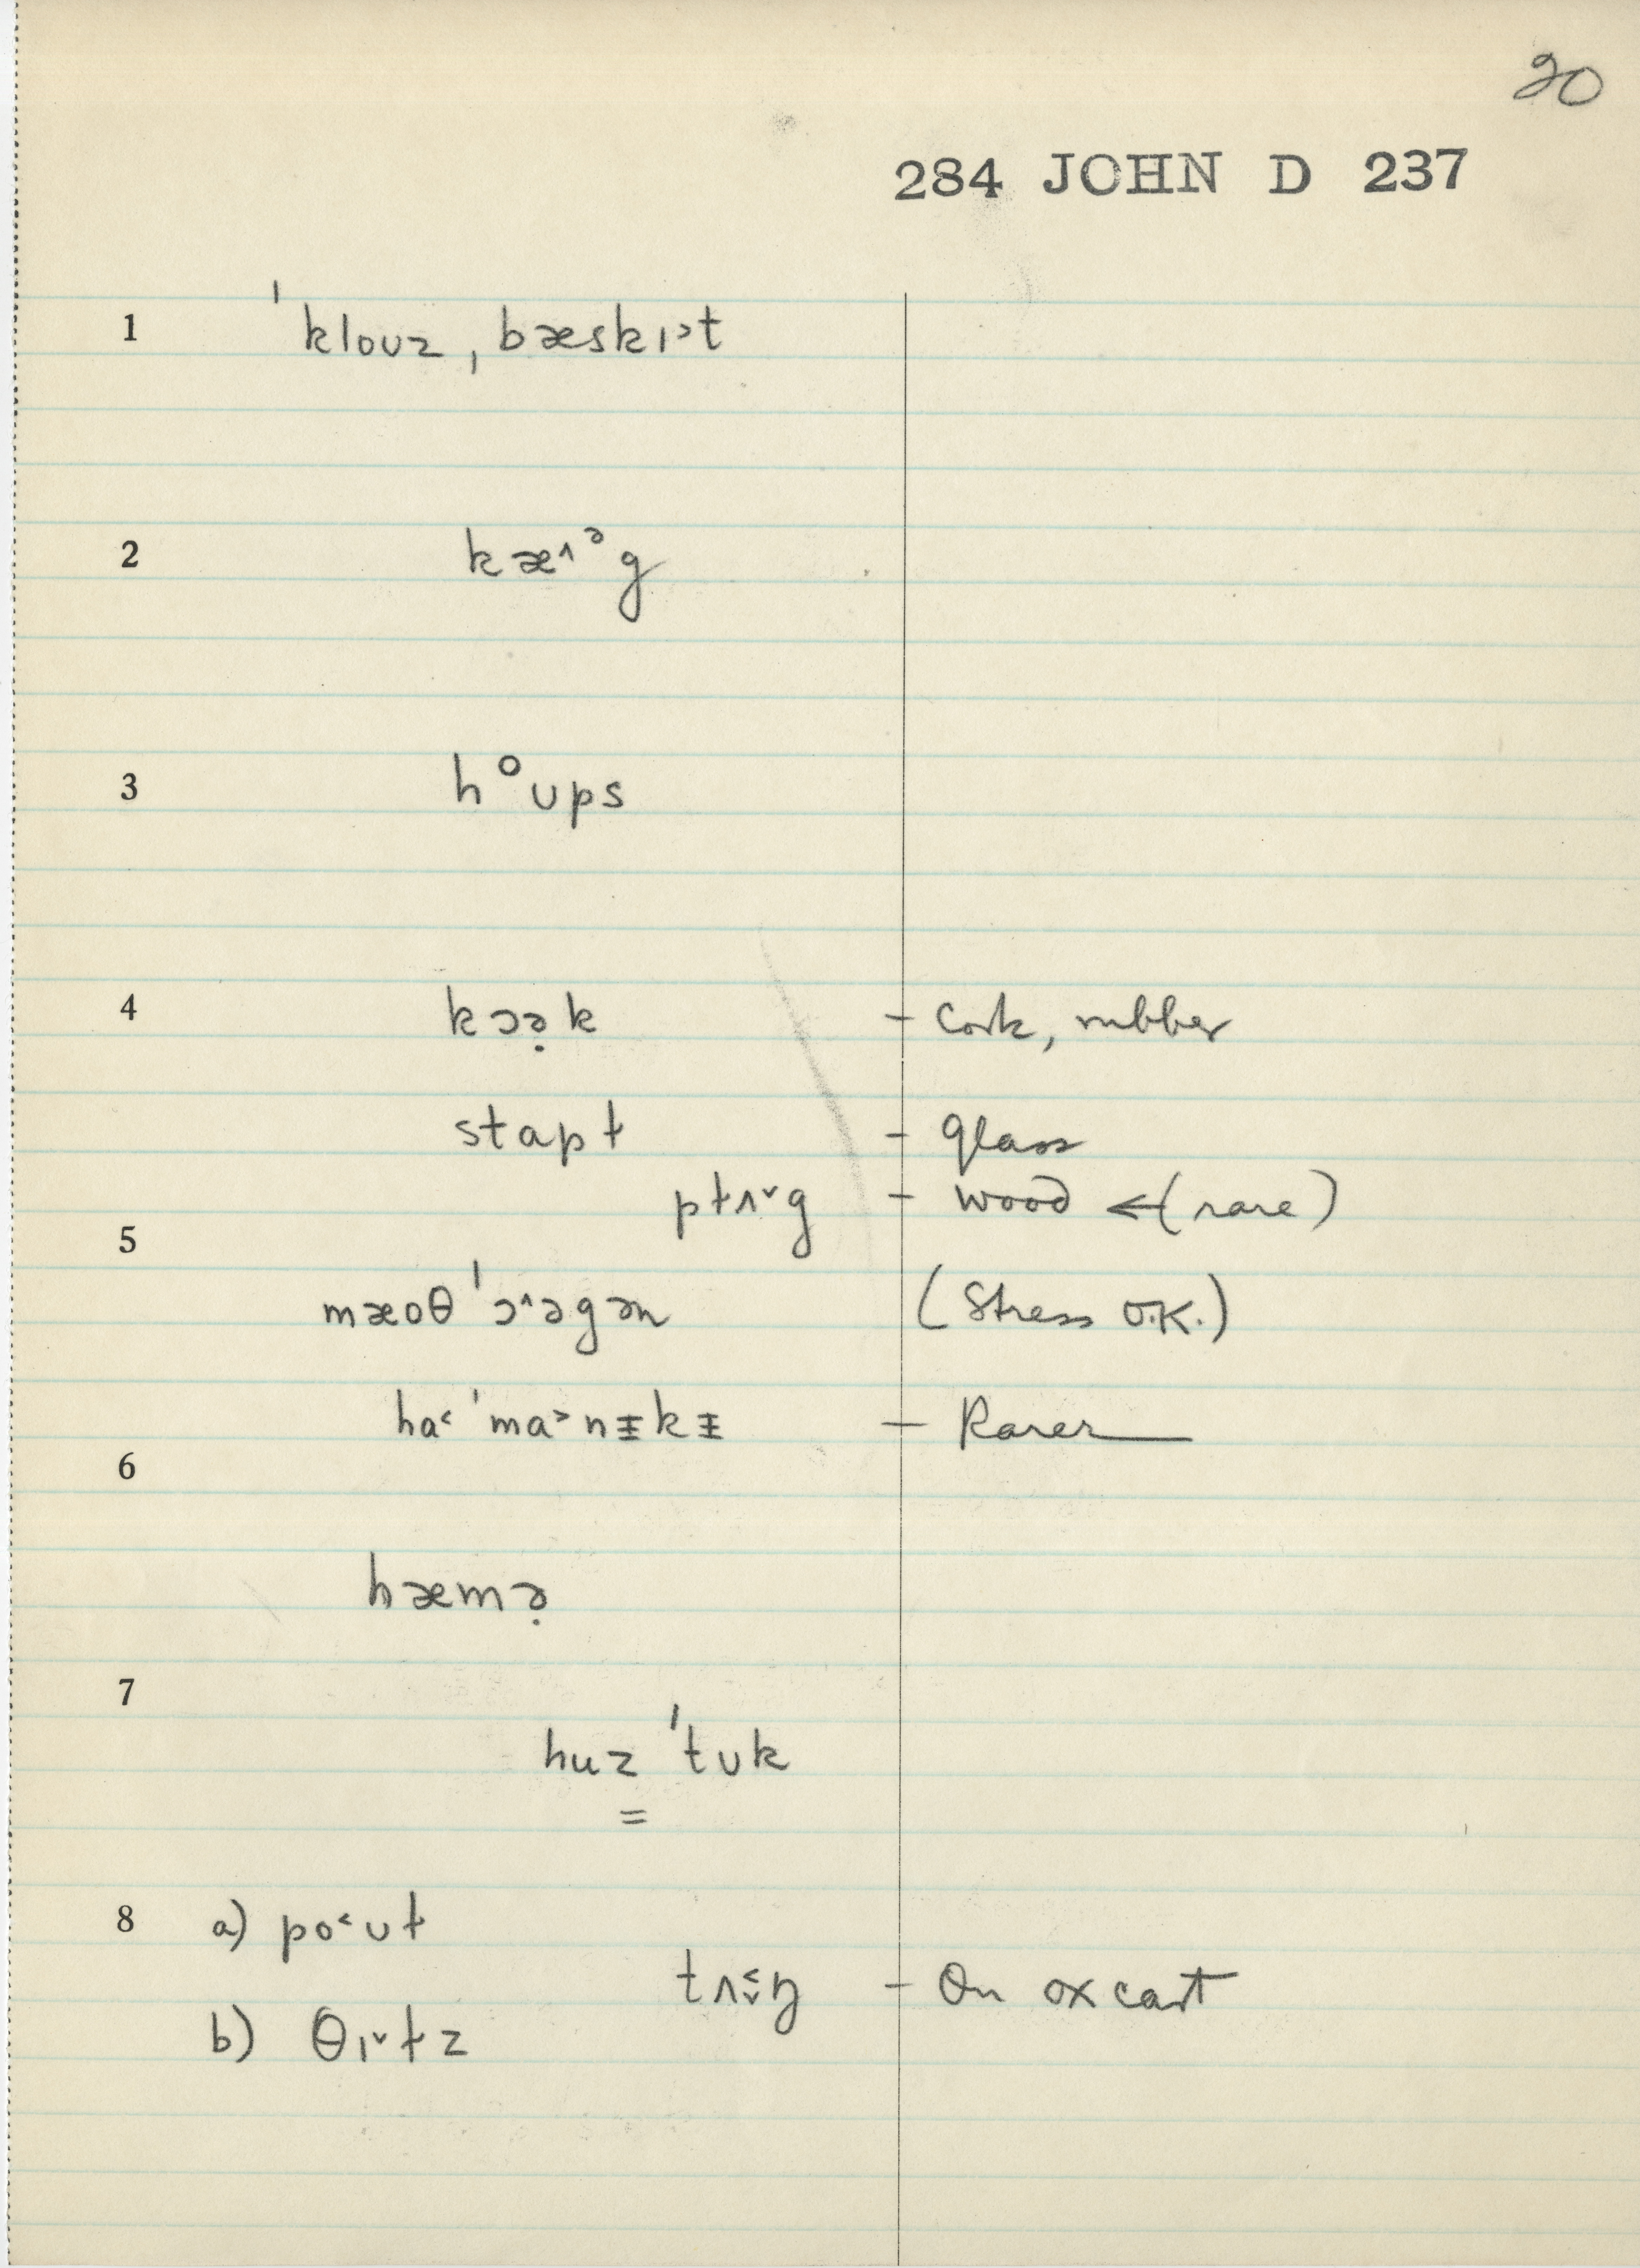 20
284 JOHN D 237
1 ˈkloʊz ˌbæskɪ˃t
2 kæ˄ᵊg
3 hᵒʊps
4 kɔə̣k – Cork, rubber
stapɫ – glass
pɫʌ˅g – wood ← (rare)
5
mæoθ ˈɔ˄əgən (Stress O.K.)
ha˂ ˈma˃nɨkɨ – Rarer
6
hæmə̣
7
huz ˈtʊk
=
8 a) po˂ʊɫ
tʌ˂˅ŋ – On ox cart
b) θɪ˅ɫz